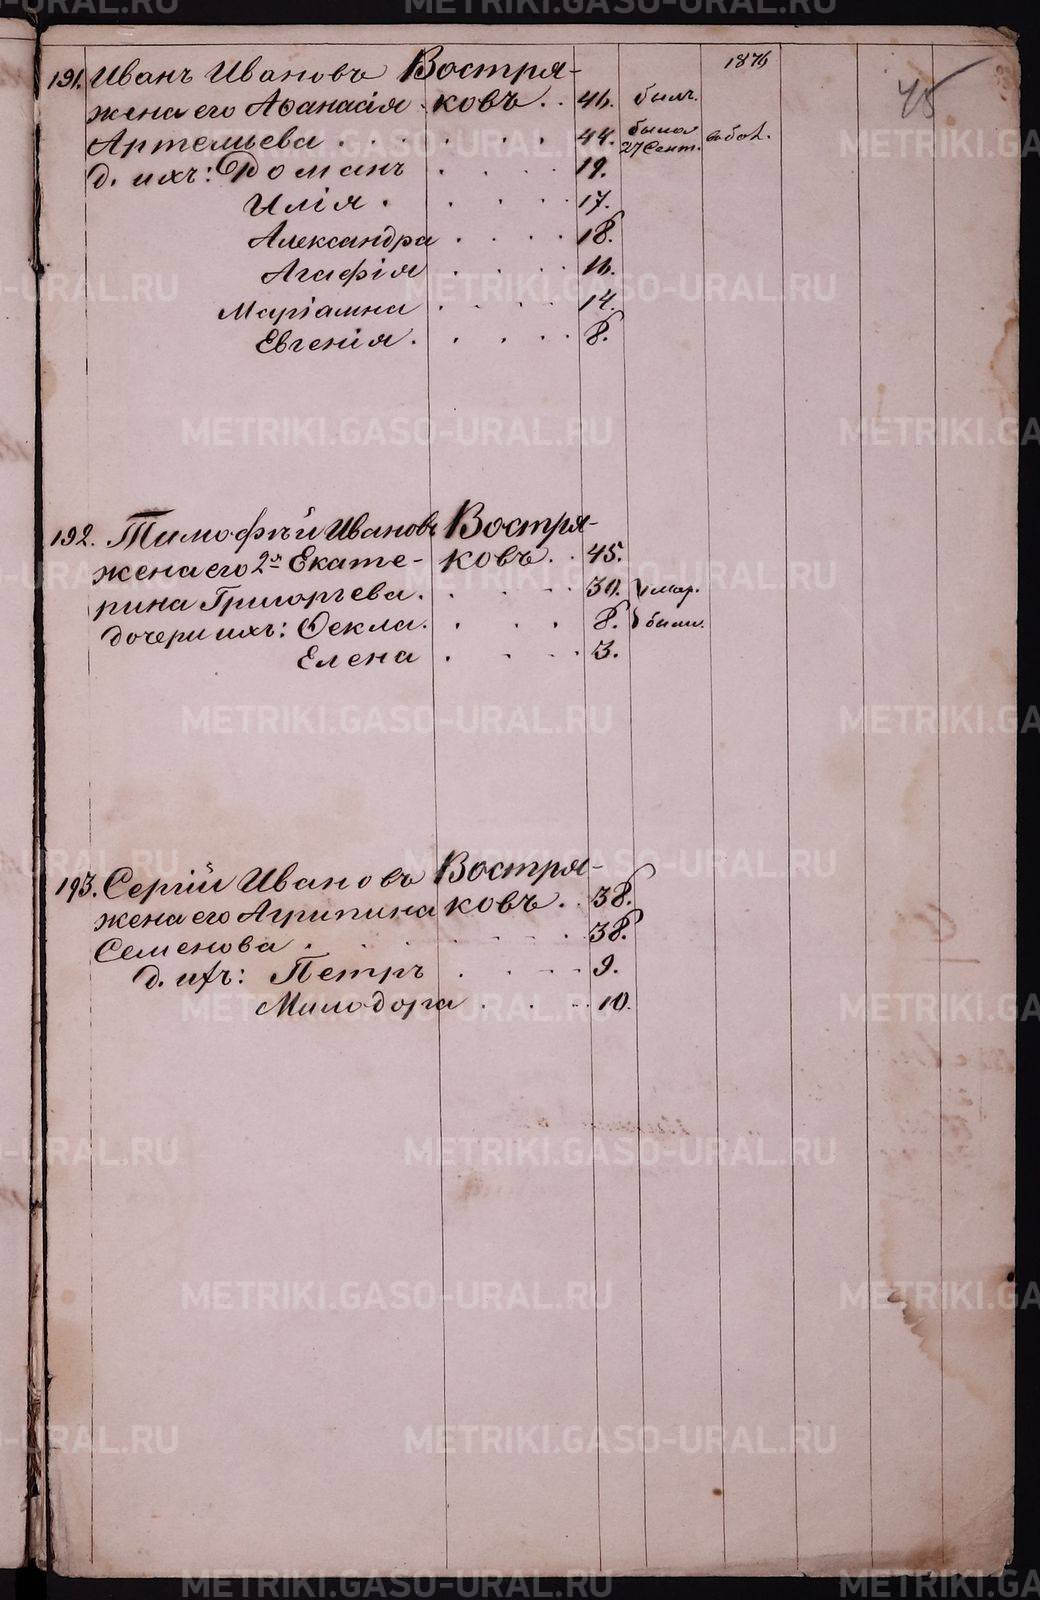 1876
45
191. Иванъ Ивановъ Востря-
жена его Аѳанасія ковъ . . 46. былъ.
Артемьева . . . . . . 44. была 27 Сент. въ бол.
д. ихъ: Романъ . . . . 19.
Илія . . . . . 17.
Александра . . . . 18.
Агафія . . . . 16.
Маріамна . . . . 14.
Евгенія . . . . . 8.
192. Тимофѣй Ивановъ Востря-
жена его 2я Екате- ковъ . . 45.
рина Григорьева . . . . . 30. } мар.
дочери ихъ: Ѳекла . . . . 8. } были.
Елена . . . . 3.
193. Сергій Ивановъ Востря-
жена его Агрипина ковъ . . 38.
Семенова . . . . . . 38.
д. ихъ: Петръ . . . . 9.
Милодора . . . . 10.
METRIKI.GASO-URAL.RU